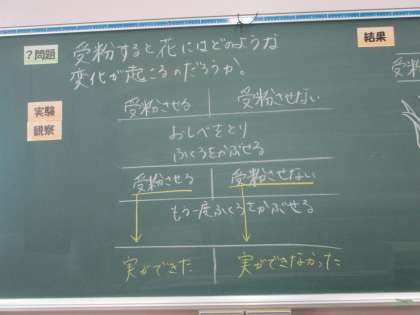 ?問題
受粉すると花にはどのような
変化が起こるのだろうか。
結果
実験
観察
受粉させる 受粉させない
おしべをとり
ふくろをかぶせる
受粉させる 受粉させない
もう一度ふくろをかぶせる
実ができた 実ができなかった
受粉